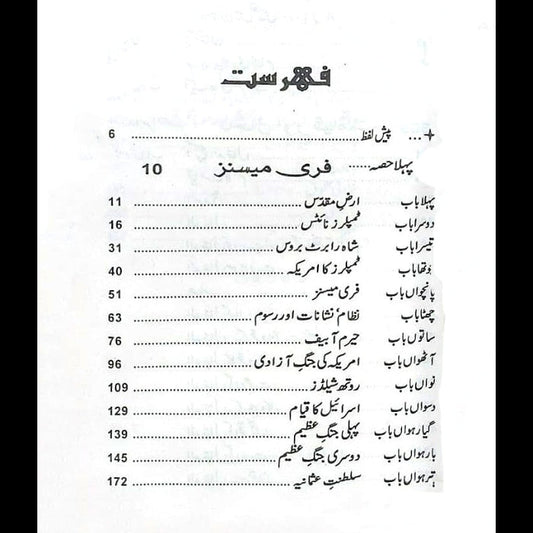 فہرست
... پیش لفظ ........ 6
پہلا حصہ ...... فری میسنز 10
پہلا باب ارضِ مقدّس ........ 11
دوسرا باب ٹمپلرز نائٹس ........ 16
تیسرا باب شاہ رابرٹ بروس ........ 31
چوتھا باب ٹمپلرز کا امریکہ ........ 40
پانچواں باب فری میسنز ........ 51
چھٹا باب نظام، نشانات اور رسوم ........ 63
ساتواں باب حیرم آبیف ........ 76
آٹھواں باب امریکہ کی جنگِ آزادی ........ 96
نواں باب روتھ شیلڈز ........ 109
دسواں باب اسرائیل کا قیام ........ 129
گیارھواں باب پہلی جنگِ عظیم ........ 139
بارھواں باب دوسری جنگِ عظیم ........ 145
تیرھواں باب سلطنتِ عثمانیہ ........ 172